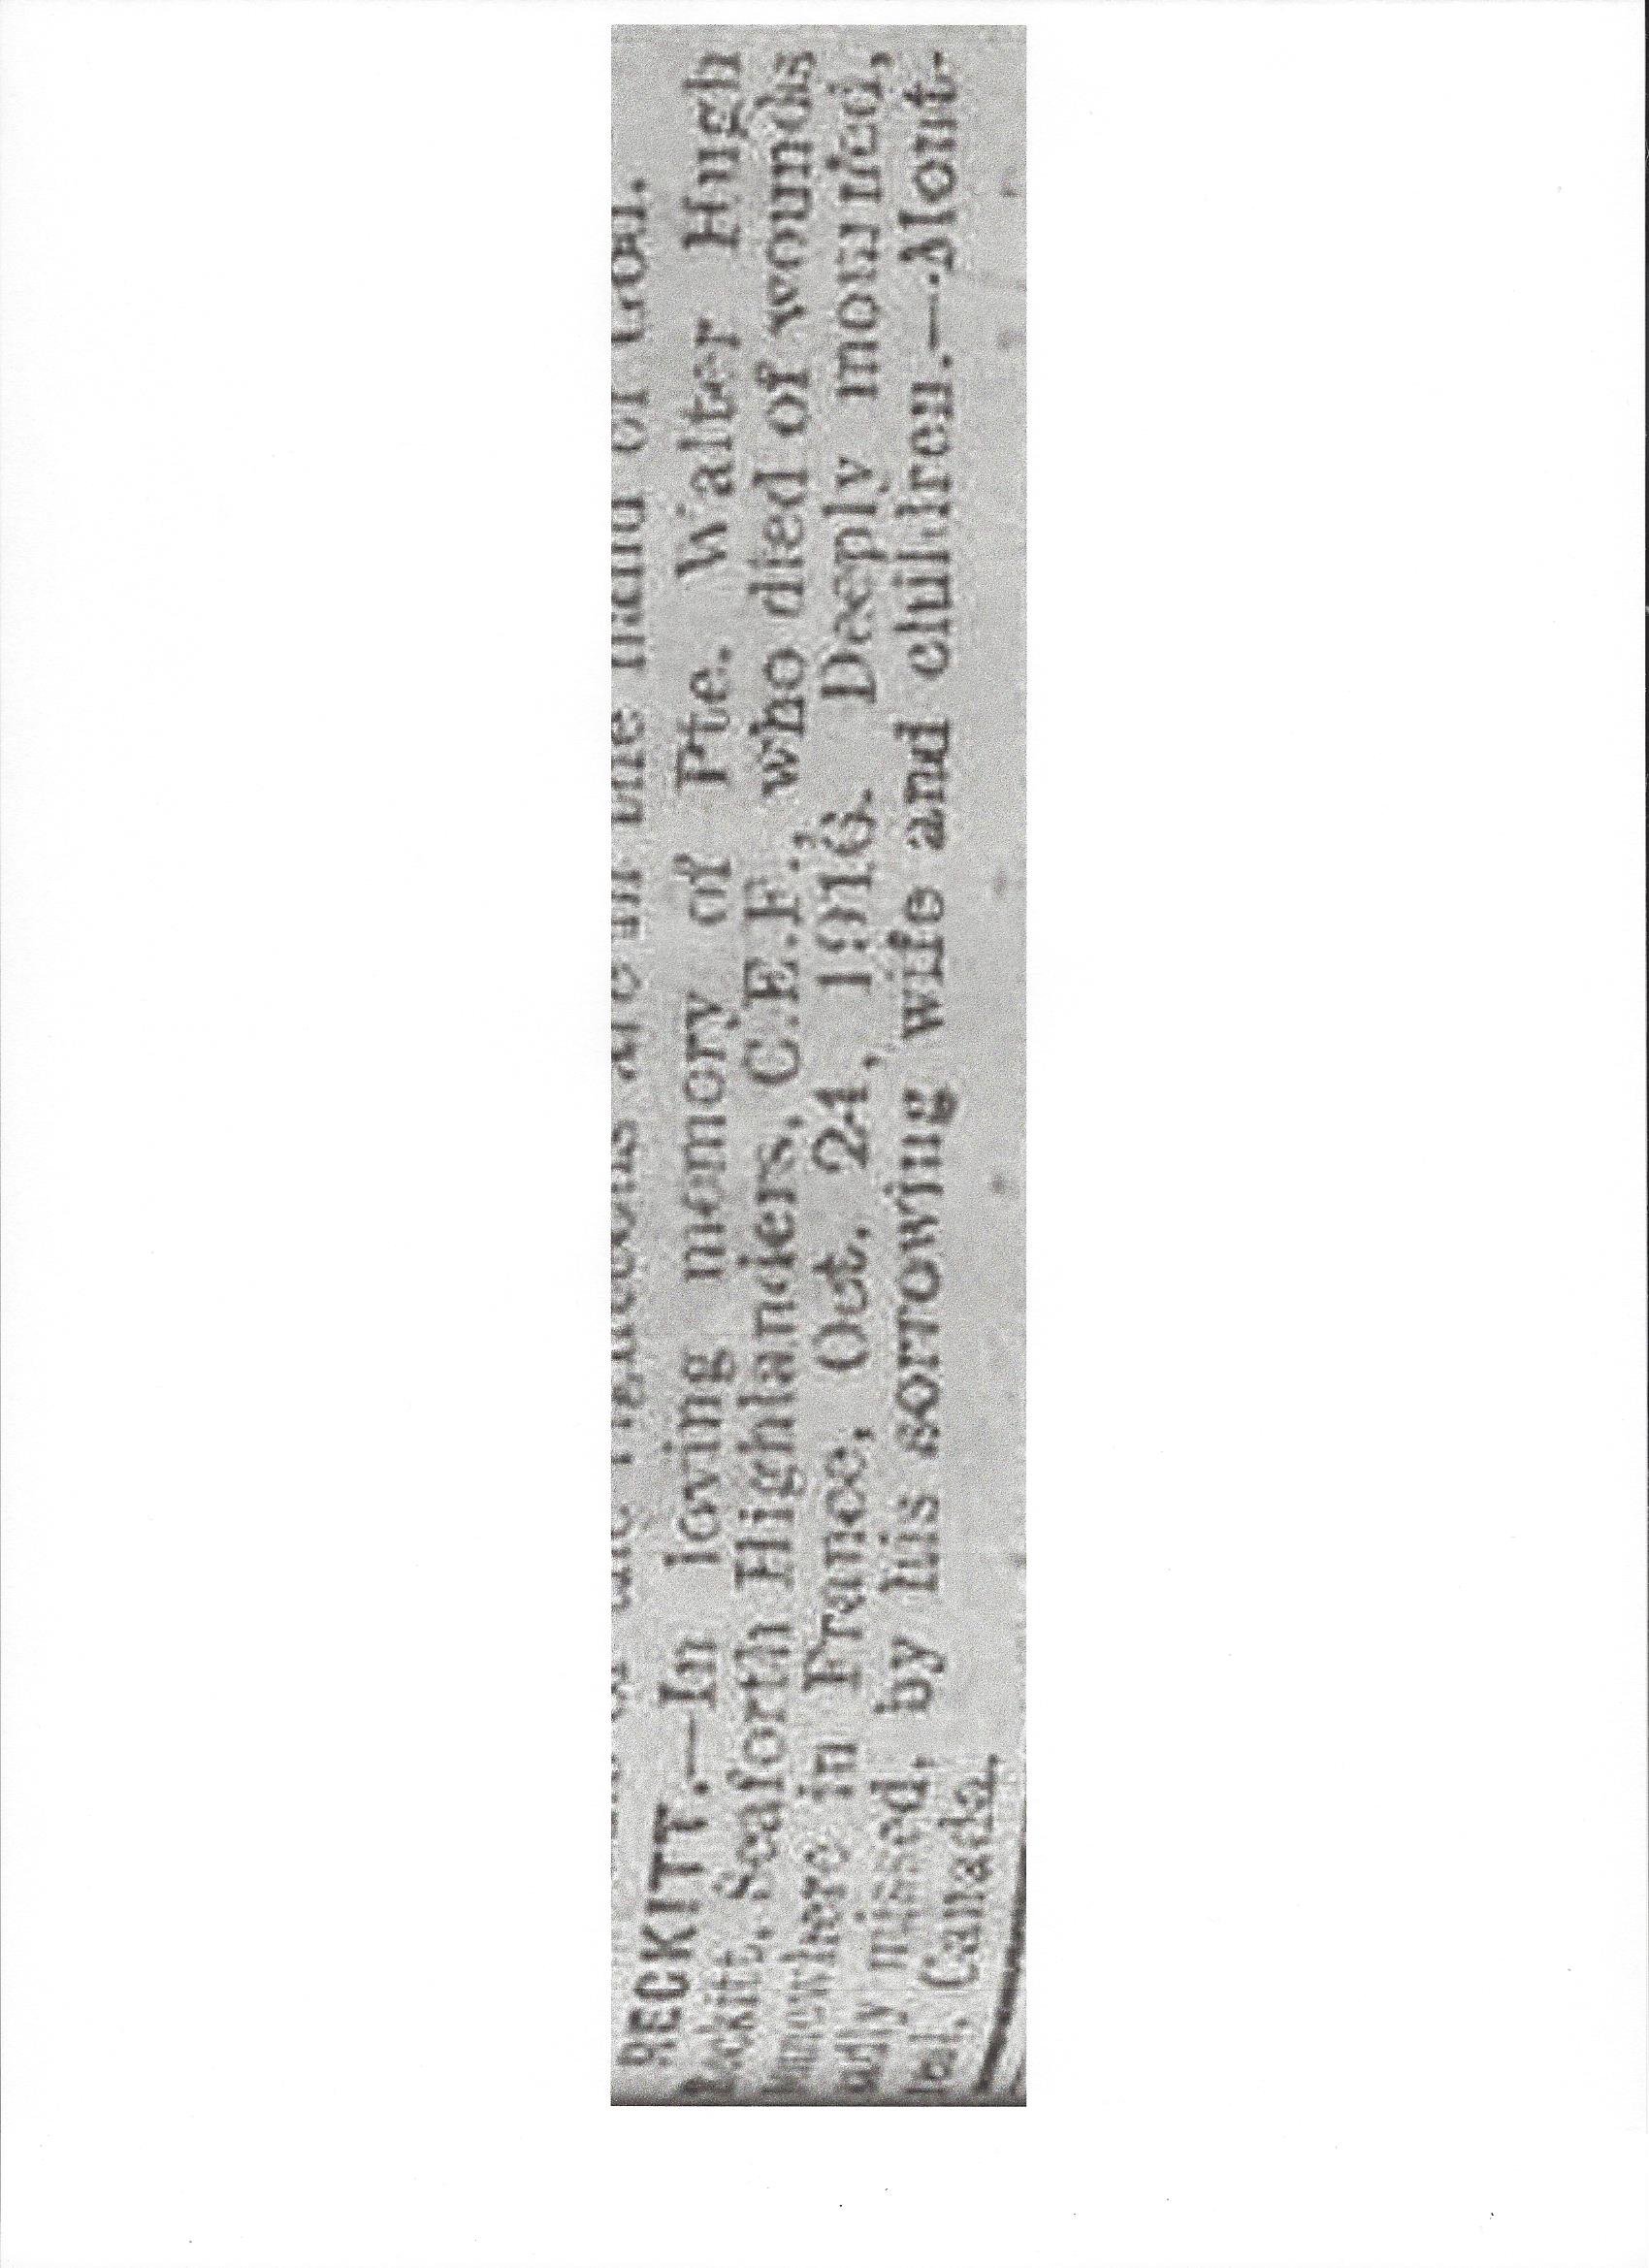 the righteous are in the hand of God.
RECKITT.—In loving memory of Pte. Walter Hugh
Reckitt, Seaforth Highlanders, C.E.F., who died of wounds
somewhere in France, Oct. 24, 1916. Deeply mourned,
sadly missed, by his sorrowing wife and children.—Mont-
real, Canada.